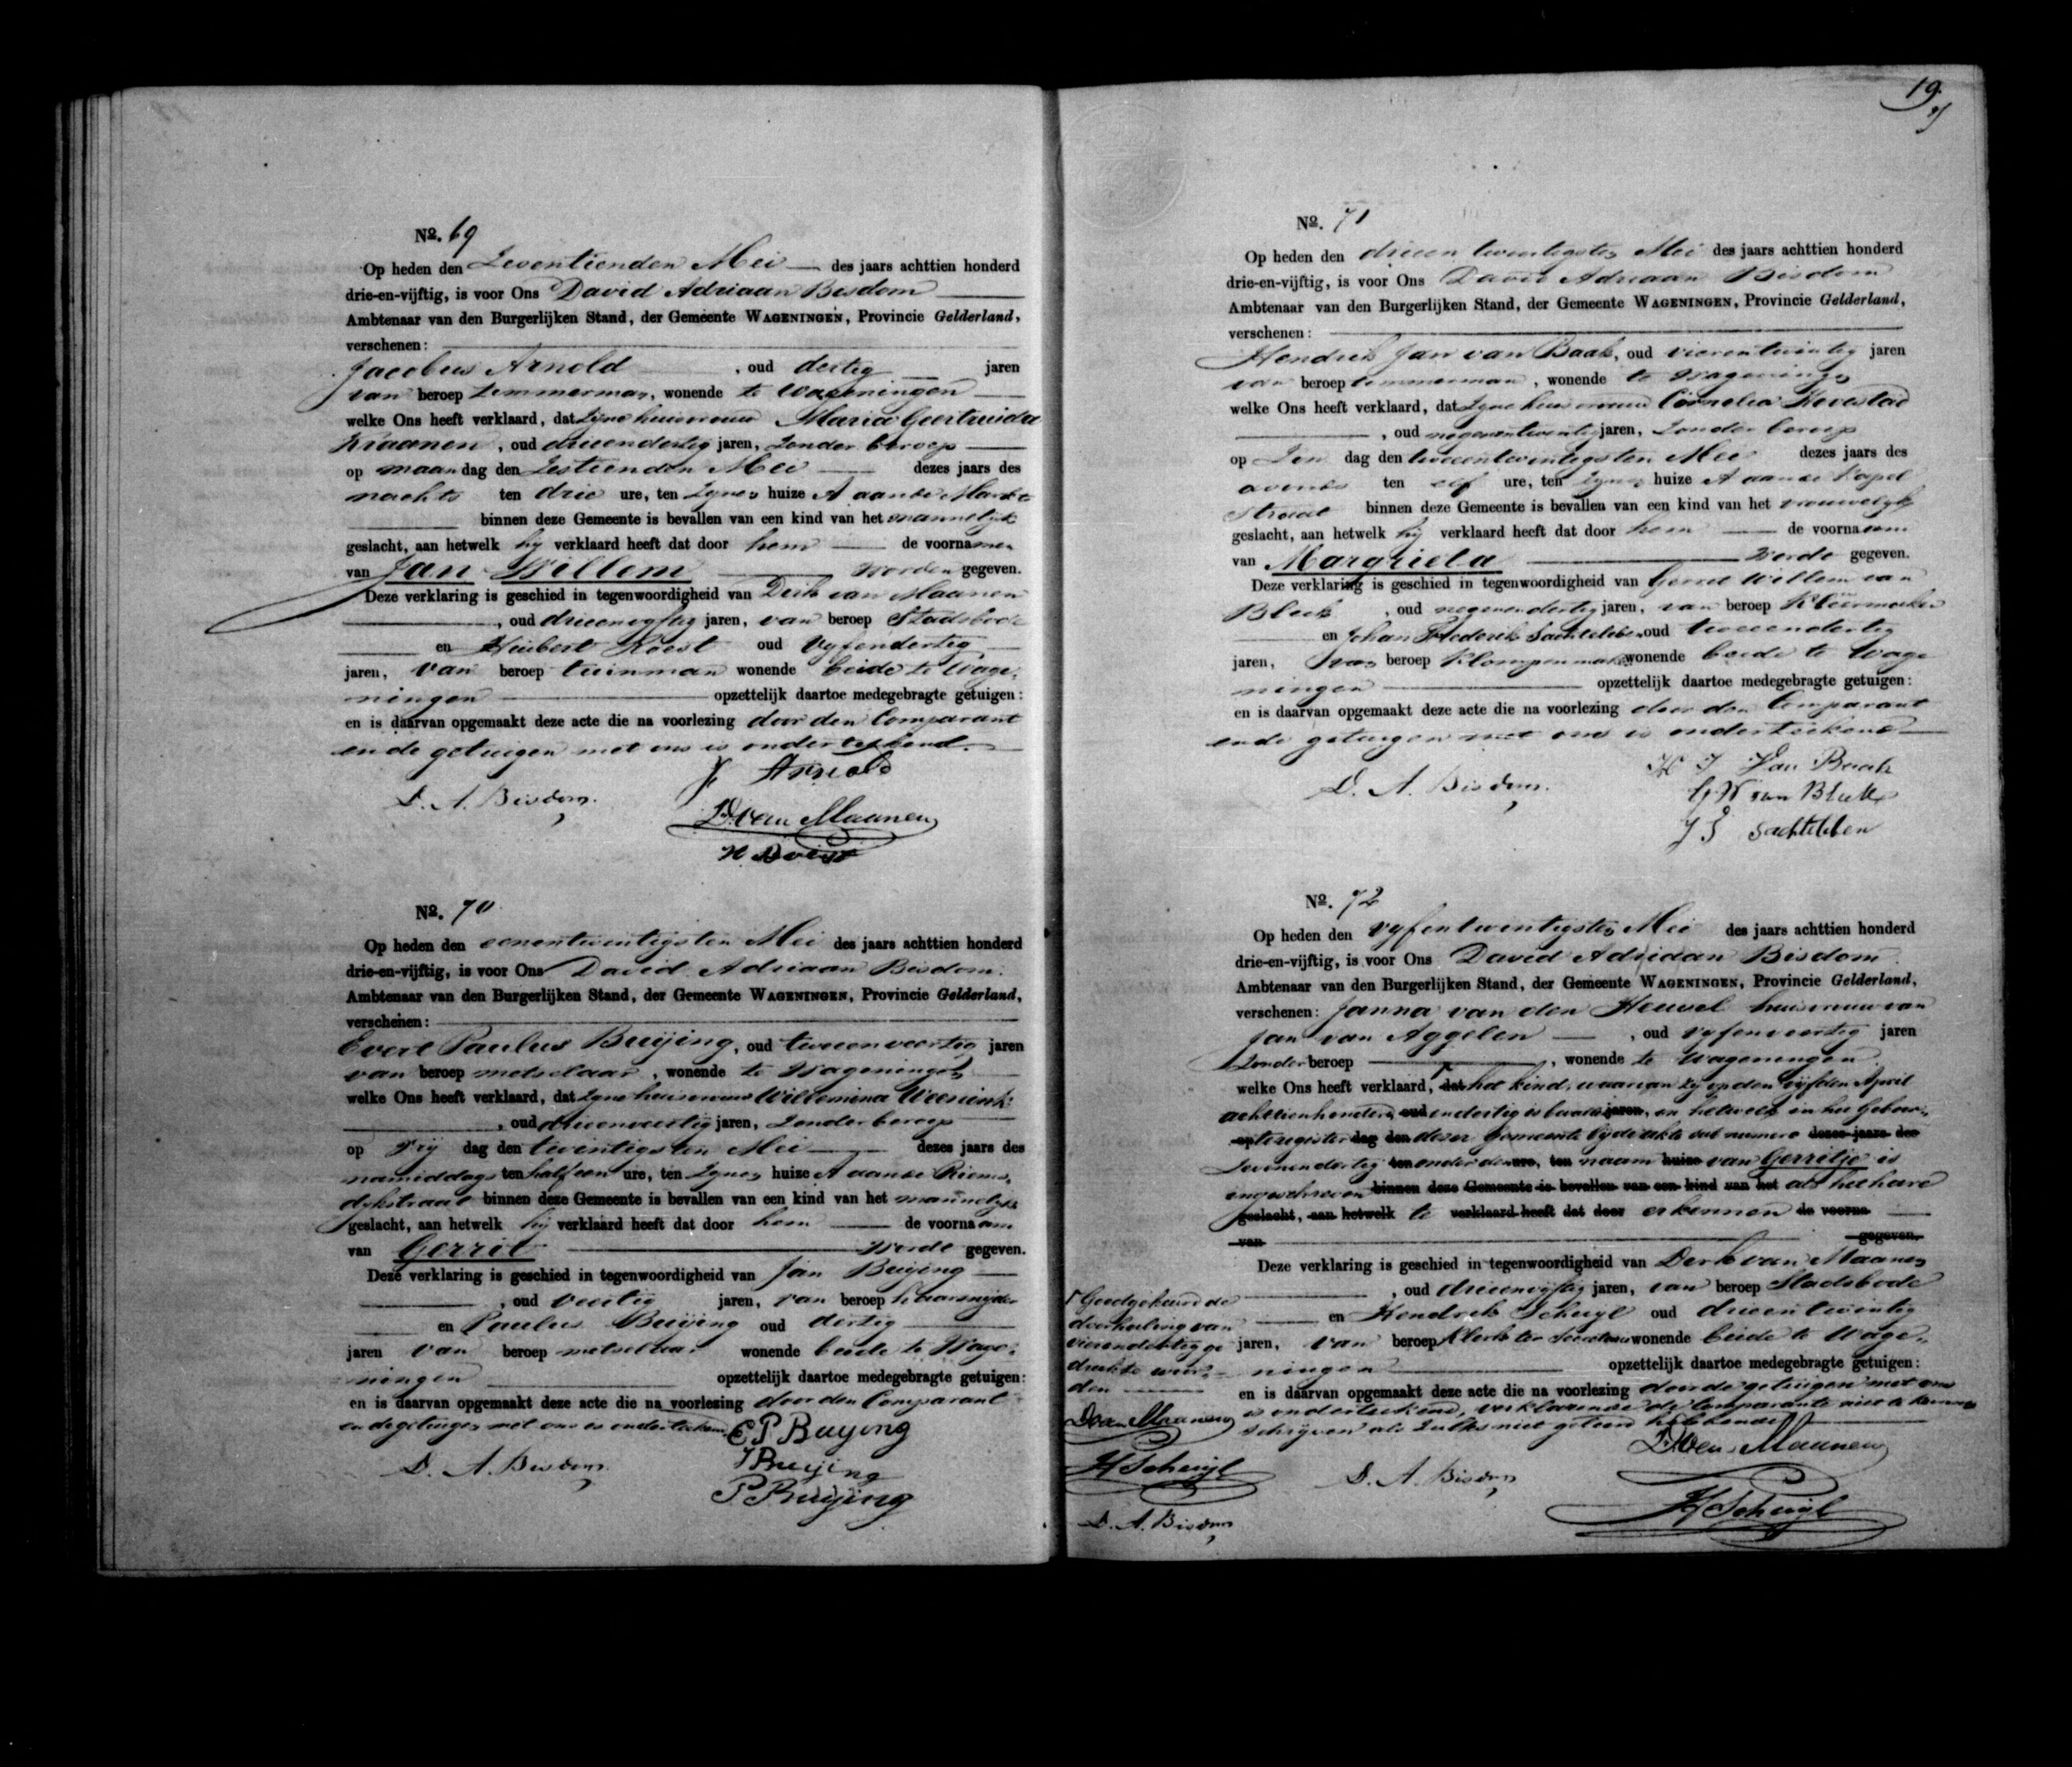 19
No. 69
Op heden den Zeventienden Mei des jaars achttien honderd
drie-en-vijftig, is voor Ons David Adriaan Bisdom
Ambtenaar van den Burgerlijken Stand, der Gemeente WAGENINGEN, Provincie Gelderland,
verschenen:
Jacobus Arnold, oud dertig jaren
van beroep temmerman, wonende te Wageningen
welke Ons heeft verklaard, dat zyne huisvrouw Maria Geertruida
Kraanen, oud drieendertig jaren, zonder beroep
op maandag den Zestienden Mei dezes jaars des
nachts ten drie ure, ten zynen huize A aan de Markt
binnen deze Gemeente is bevallen van een kind van het mannelijk
geslacht, aan hetwelk hij verklaard heeft dat door hem de voornamen
van Jan Willem worden gegeven.
Deze verklaring is geschied in tegenwoordigheid van Derk van Maanen
, oud drieenvyftig jaren, van beroep Stadsbode
en Huibert Roest oud Vyfendertig
jaren, van beroep tuinman wonende beide te Wage-
ningen opzettelijk daartoe medegebragte getuigen:
en is daarvan opgemaakt deze acte die na voorlezing door den Comparant
en de getuigen met ons is onderteekend.
J Arnold
D. A. Bisdom.
D van Maanen
H. Roest
No. 70
Op heden den eenentwintigsten Mei des jaars achttien honderd
drie-en-vijftig, is voor Ons David Adriaan Bisdom.
Ambtenaar van den Burgerlijken Stand, der Gemeente WAGENINGEN, Provincie Gelderland,
verschenen:
Evert Paulus Buijing, oud tweeenveertig jaren
van beroep metselaar, wonende te Wageningen
welke Ons heeft verklaard, dat zyne huisvrouw Willemina
, oud drieenveertig jaren, zonder beroep
op Vrij dag den twintigsten Mei dezes jaars des
namiddags ten half een ure, ten zynen huize A aan de Riems-
dykstraat binnen deze Gemeente is bevallen van een kind van het mannelyk
geslacht, aan hetwelk hij verklaard heeft dat door hem de voornaam
van Gerrit werde gegeven.
Deze verklaring is geschied in tegenwoordigheid van Jan Buijing
, oud veertig jaren, van beroep
en Paulus Buijing oud dertig
jaren van beroep metselaar wonende beide te Wage-
ningen opzettelijk daartoe medegebragte getuigen:
en is daarvan opgemaakt deze acte die na voorlezing door den Comparant
en de getuigen met ons is onderteekend.
E P Buijing
D. A. Bisdom
J Buijing
P Buijing
No. 71
Op heden den drieentwintigsten Mei des jaars achttien honderd
drie-en-vijftig, is voor Ons David Adriaan Bisdom
Ambtenaar van den Burgerlijken Stand, der Gemeente WAGENINGEN, Provincie Gelderland,
verschenen:
Hendrik Jan van Baak, oud vierentwintig jaren
van beroep temmerman, wonende te Wageningen
welke Ons heeft verklaard, dat zyne huisvrouw Cornelia Hovestad
, oud negenentwintig jaren, zonder beroep
op Zon dag den tweeentwintigsten Mei dezes jaars des
avonds ten elf ure, ten zynen huize A aan de Kapel
straat binnen deze Gemeente is bevallen van een kind van het vrouwelyk
geslacht, aan hetwelk hij verklaard heeft dat door hem de voornaam
van Margrieta werde gegeven.
Deze verklaring is geschied in tegenwoordigheid van Gerrit Willem van
Bleek, oud negenendertig jaren, van beroep Kleermaker
en Johan Frederik Sachteleben oud tweeendertig
jaren, van beroep Klompenmaker wonende beide te Wage
ningen opzettelijk daartoe medegebragte getuigen:
en is daarvan opgemaakt deze acte die na voorlezing door den Comparant
en de getuigen met ons is onderteekend
H J Van Baak
D. A. Bisdom.
G W van Bleek
J F Sachteleben
No. 72
Op heden den vyfentwintigsten Mei des jaars achttien honderd
drie-en-vijftig, is voor Ons David Adriaan Bisdom
Ambtenaar van den Burgerlijken Stand, der Gemeente WAGENINGEN, Provincie Gelderland,
verschenen: Janna van den Heuvel huisvrouw van
Jan van Aggelen, oud vyfenveertig jaren
zonder beroep, wonende te Wageningen
welke Ons heeft verklaard, dat het kind, waarvan zy op den vijfden April
achttienhonderd oud endertig is bevallen jaren, en hetwelk in het Geboor-
op teregister dag den dezer Gemeente bydeakte sub numero dezes jaars des
Zevenendertig ten onder den ure, ten naam huize van Gerritje is
ingeschreven binnen deze Gemeente is bevallen van een kind van het als het hare
geslacht, aan hetwelk te verklaard heeft dat door erkennen de voorna
van gegeven.
Deze verklaring is geschied in tegenwoordigheid van Derk van Maanen
, oud drieenvyftig jaren, van beroep Stadsbode
en Hendrik Scheijl oud drieentwintig
jaren, van beroep Klerk ter Secretarie wonende beide te Wage-
ningen opzettelijk daartoe medegebragte getuigen:
en is daarvan opgemaakt deze acte die na voorlezing door de getuigen met ons
is onderteekend, verklarende de Comparante niet te kunnen
schrijven als zulks niet geleerd hebbende
D van Maanen
D. A. Bisdom
H Scheijl
Goedgekeurd de
doorhaling van
vierendertig ge
drukte woor-
den
D van Maanen
H Scheijl
D. A. Bisdom